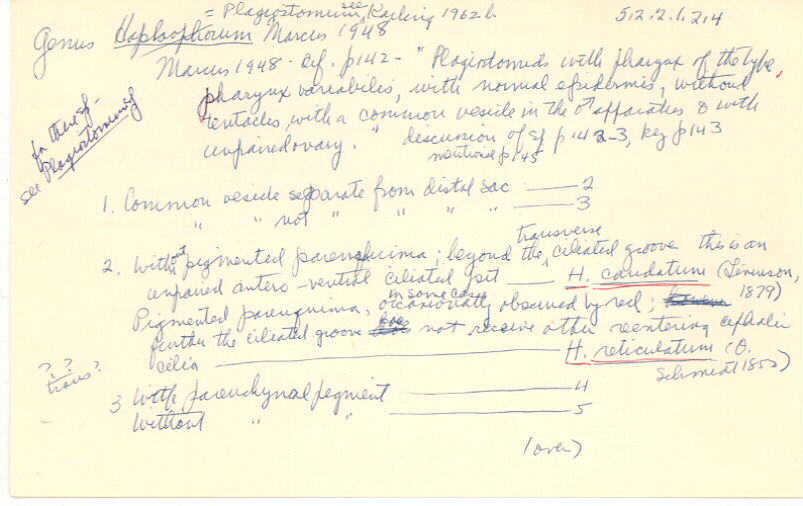 = Plagiostomum, see Karling 1962b
5.2.2.1.2.4
Genus Haplooplorum Marcus 1948
Marcus 1948. df. p142 - "Plagiostomids with pharynx of the type,
pharynx variabilis, with normal epidermis, without
tentacles, with a common vesicle in the ♂ apparatus & with
unpaired ovary." discussion of sp p 142-3, key p 143
mentioned p 145
for these sp-
see Plagiostomum
1. Common vesicle separate from distal sac — 2
" " not " " " " — 3
2. Without pigmented parenchyma; beyond the transverse ciliated groove this is an
unpaired antero-ventral ciliated pit — H. caudatum (Levinsen,
1879)
Pigmented parenquima, in some cases occasionally observed by red;
further the ciliated groove does not receive other reentering cephalic
cilia — H. reticulatum (O.
Schmidt 1852)
? ?
trans?
3 With parenchymal pigment — 4
Without " " — 5
(over)